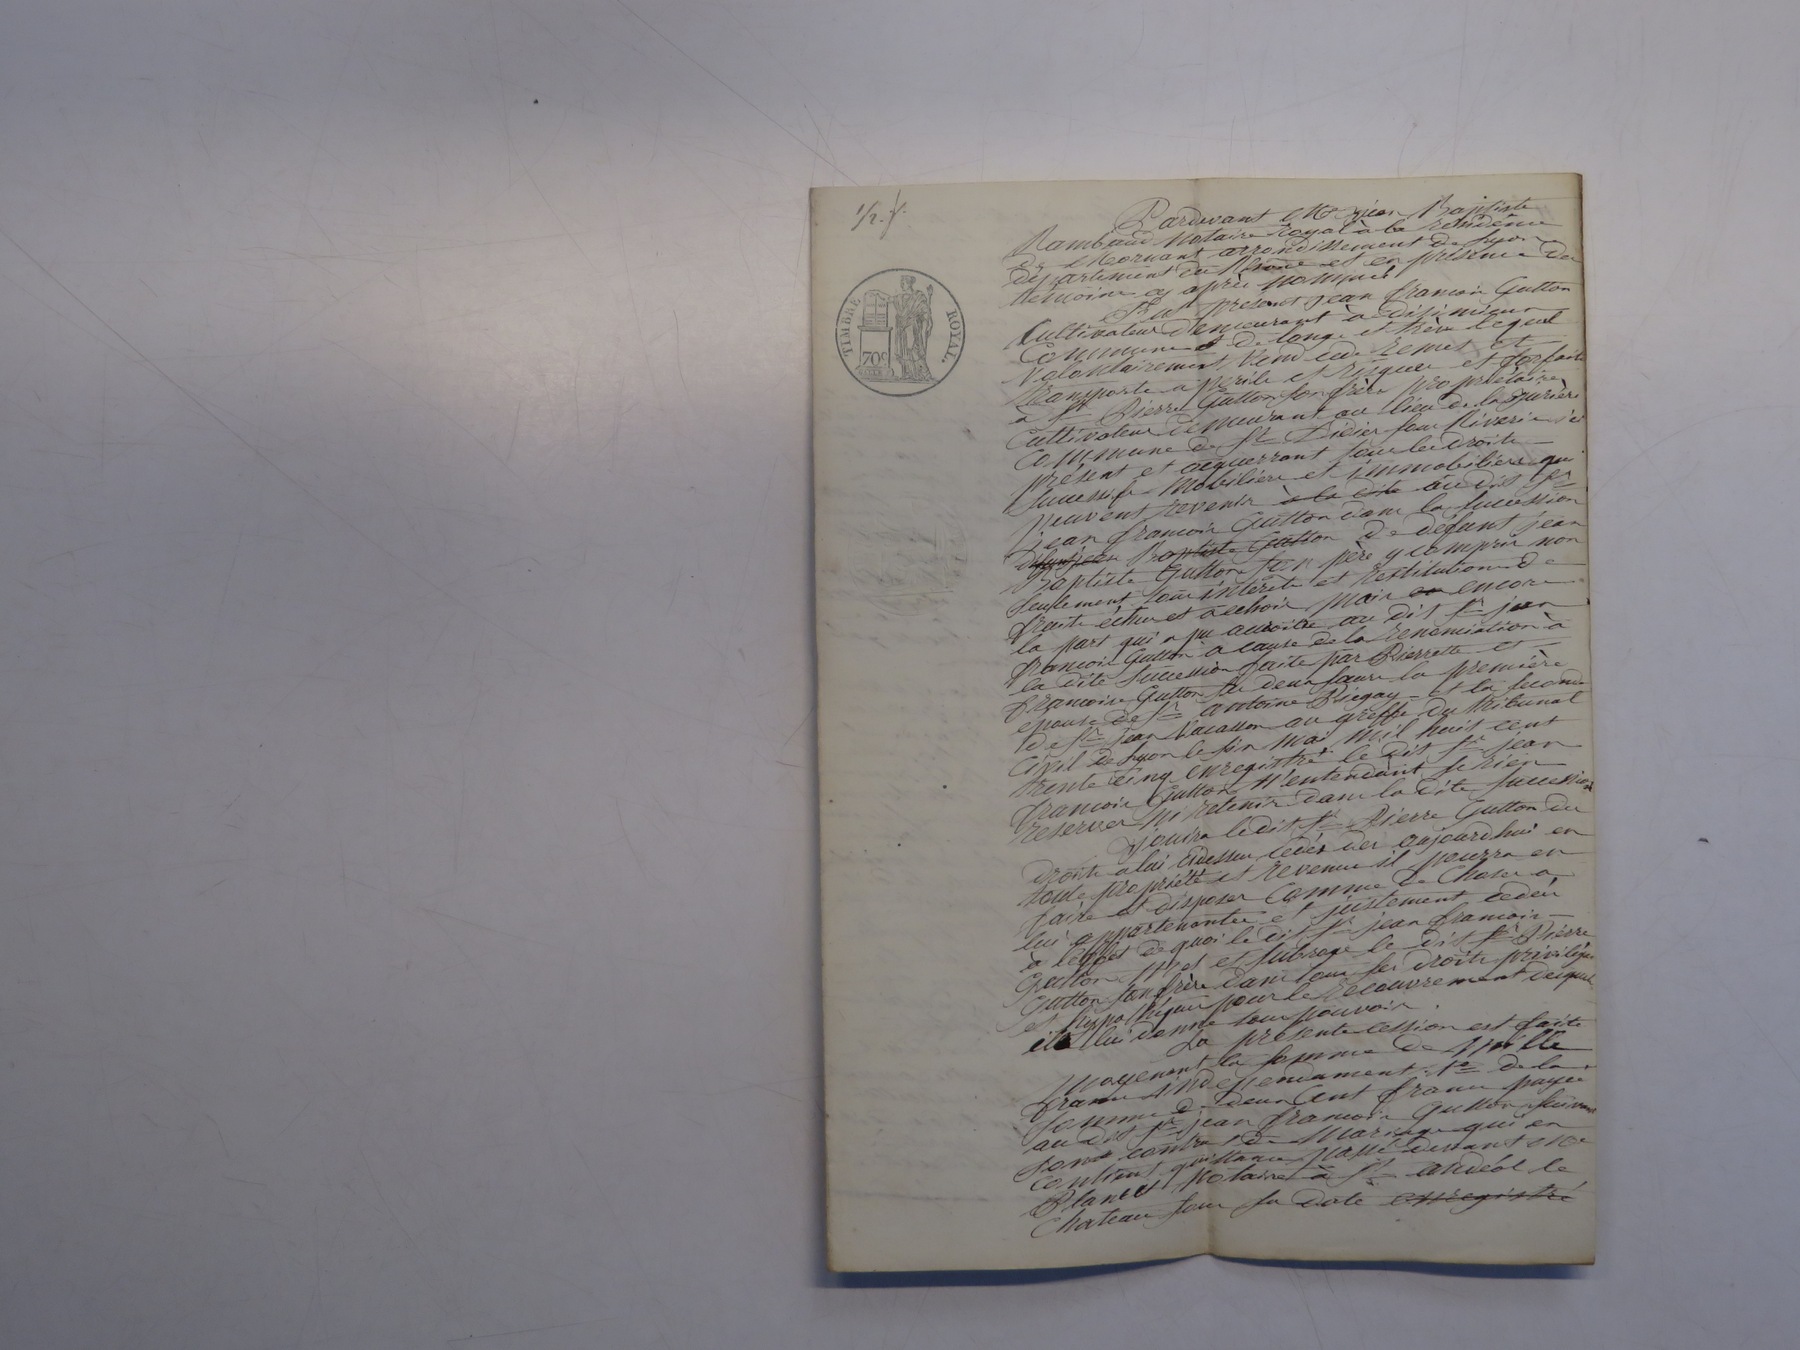 1/2. f.
TIMBRE ROYAL.
70c
Pardevant Me jean Baptiste
Rambaud Notaire royal à la residence
de Mornant arrondissement de Lyon
departement du Rhone et en présence des
temoins cy après nommés
Fut présent jean francois Gutton
Cultivateur demeurant à
Commune de longe et trève lequel
volontairement vend cede remet et
transporte a perils et risques et forfait
à Sr Pierre Gutton son frère propriétaire
Cultivateur demeurant au lieu de la
Commune de St Didier sous Riverie ici
présent et acquerrant tous les droits
Successifs Mobiliers et immobiliers qui
peuvent revenir à la dite au dit Sr
jean francois Gutton dans la succession
Baptiste Gutton de defunt jean
Baptiste Gutton son père y compris non
seulement tous interets et restitution de
fruits échus et a echoir mais en encore
la part qui a pu accroitre au dit Sr jean
francois Gutton a cause de la renonciation à
la dite succession faite par Pierrette et
francoise Gutton ses deux sœurs la première
epouse de Sr antoine et la seconde
de Sr jean au greffe du tribunal
Civil de Lyon le six mai mil huit cent
trente cinq enregistré le dit Sr jean
francois Gutton n'entendant se rien
reserver ni retenir dans la dite succession
Jouira le dit Sr Pierre Gutton des
droits a lui cidessus cédés des aujourdhui en
toute propriété et revenus il pourra en
faire et disposer Comme de Choses a
lui appartenantes et justement cedées
à l'effet de quoi le dit Sr jean francois
Gutton met et subroge le dit Sr Pierre
Gutton son frère dans tous ses droits privilèges
et hypothèques pour le recouvrement desquels
il lui donne tous pouvoirs.
La présente cession est faite
moyennant la somme de Mille
francs indépendamment de la
somme de deux Cent francs payée
au dit Sr jean francois Gutton suivant
son contrat de Mariage qui en
contient quittance passé devant Me
notaire à St andéol le
Chateau sous sa date enregistré